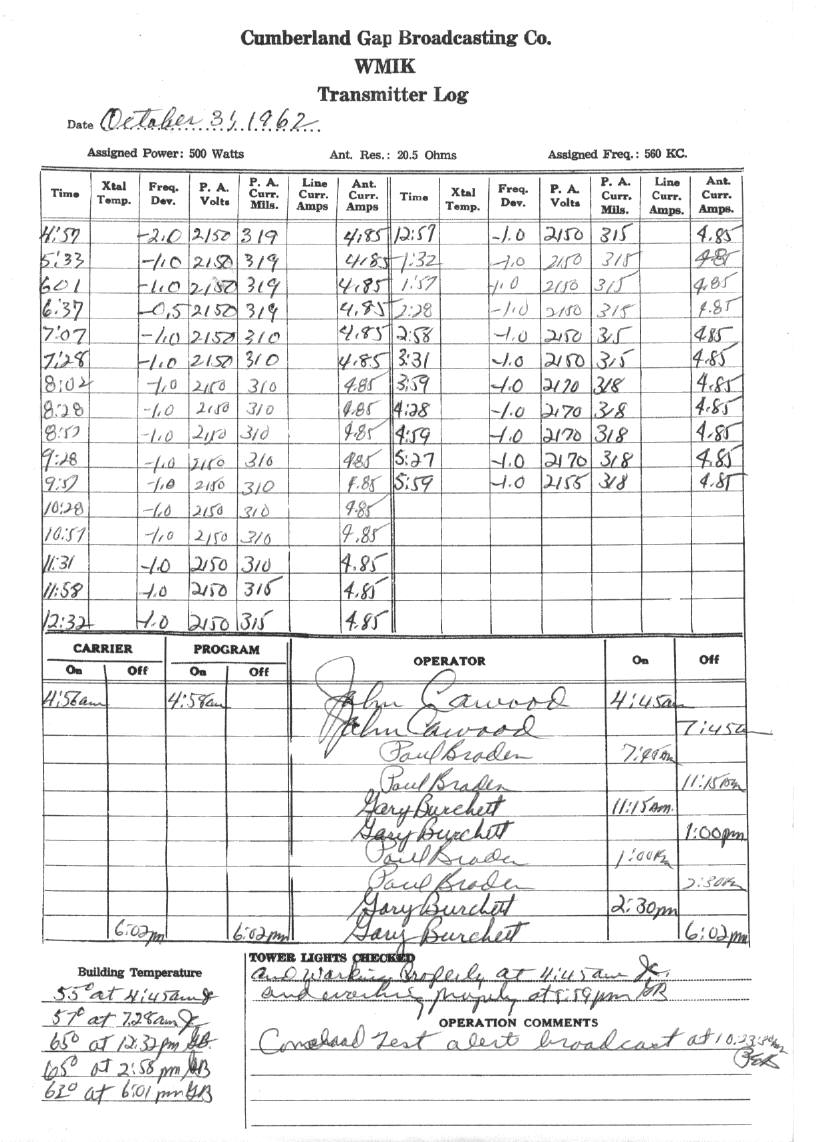 Cumberland Gap Broadcasting Co.
WMIK
Transmitter Log
Date October 31, 1962
Assigned Power: 500 Watts Ant. Res.: 20.5 Ohms Assigned Freq.: 560 KC.
Time Xtal Temp. Freq. Dev. P. A. Volts P. A. Curr. Mils. Line Curr. Amps Ant. Curr. Amps Time Xtal Temp. Freq. Dev. P. A. Volts P. A. Curr. Mils. Line Curr. Amps. Ant. Curr. Amps.
4:57 -2.0 2150 319 4.85 12:57 -1.0 2150 315 4.85
5:33 -1.0 2150 319 4.85 1:32 -1.0 2150 315 4.85
6:01 -1.0 2150 319 4.85 1:57 -1.0 2150 315 4.85
6:37 -0.5 2150 319 4.85 2:28 -1.0 2150 315 4.85
7:07 -1.0 2150 310 4.85 2:58 -1.0 2150 315 4.85
7:28 -1.0 2150 310 4.85 3:31 -1.0 2150 315 4.85
8:02 -1.0 2150 310 4.85 3:59 -1.0 2170 318 4.85
8:28 -1.0 2150 310 4.85 4:28 -1.0 2170 318 4.85
8:57 -1.0 2150 310 4.85 4:59 -1.0 2170 318 4.85
9:28 -1.0 2150 310 4.85 5:27 -1.0 2170 318 4.85
9:57 -1.0 2150 310 4.85 5:59 -1.0 2155 318 4.85
10:28 -1.0 2150 310 4.85
10:57 -1.0 2150 310 4.85
11:31 -1.0 2150 310 4.85
11:58 -1.0 2150 315 4.85
12:32 -1.0 2150 315 4.85
CARRIER PROGRAM OPERATOR On Off
On Off On Off
4:56am 4:58am John Cawood 4:45am
John Cawood 7:45am
Paul Braden 7:45am
Paul Braden 11:15am
Gary Burchett 11:15am
Gary Burchett 1:00pm
Paul Braden 1:00pm
Paul Braden 2:30pm
Gary Burchett 2:30pm
6:02pm 6:02pm Gary Burchett 6:02pm
Building Temperature
55° at 4:45am
57° at 7:28am
65° at 12:32pm GB
65° at 2:58 pm GB
63° at 6:01 pm GB
TOWER LIGHTS CHECKED
and working properly at 4:45am
and working properly at 5:59pm GB
OPERATION COMMENTS
Conelrad Test alert broadcast at 10:23